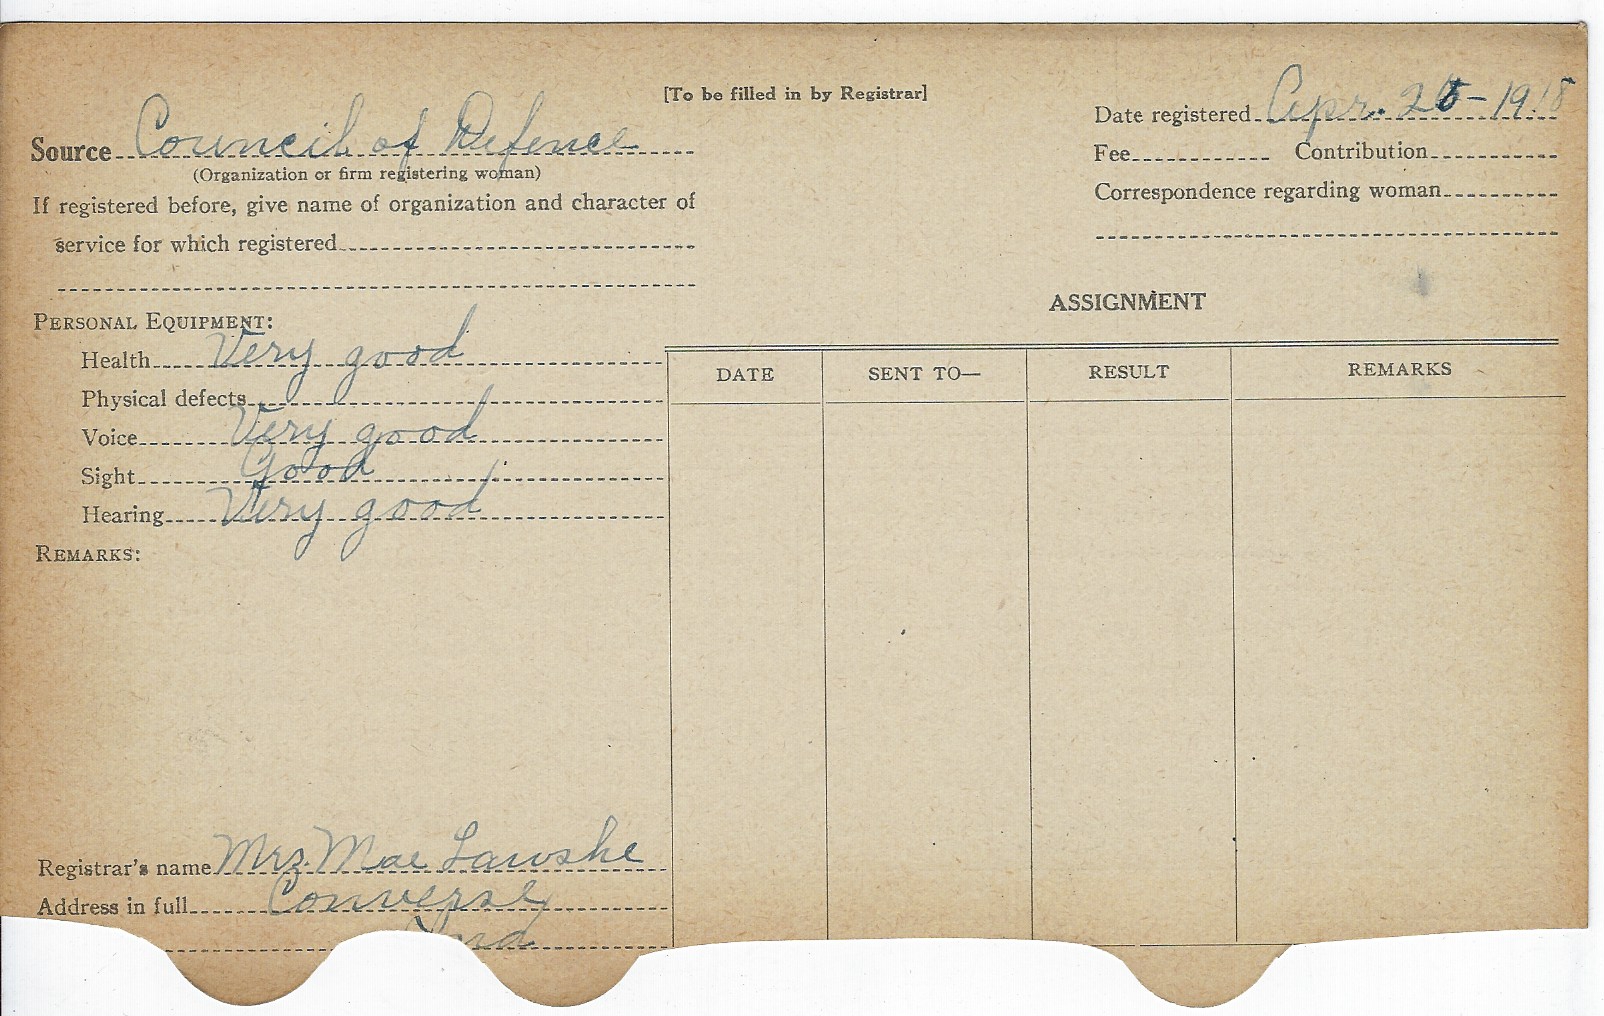 [To be filled in by Registrar]
Source Council of Defence
(Organization or firm registering woman)
If registered before, give name of organization and character of
service for which registered
Date registered Apr. 26-1918
Fee Contribution
Correspondence regarding woman
PERSONAL EQUIPMENT:
Health Very good
Physical defects
Voice Very good
Sight Good
Hearing Very good
REMARKS:
Registrar's name Mrs. Mae Lawshe
Address in full Converse
Ind
ASSIGNMENT
DATE SENT TO— RESULT REMARKS